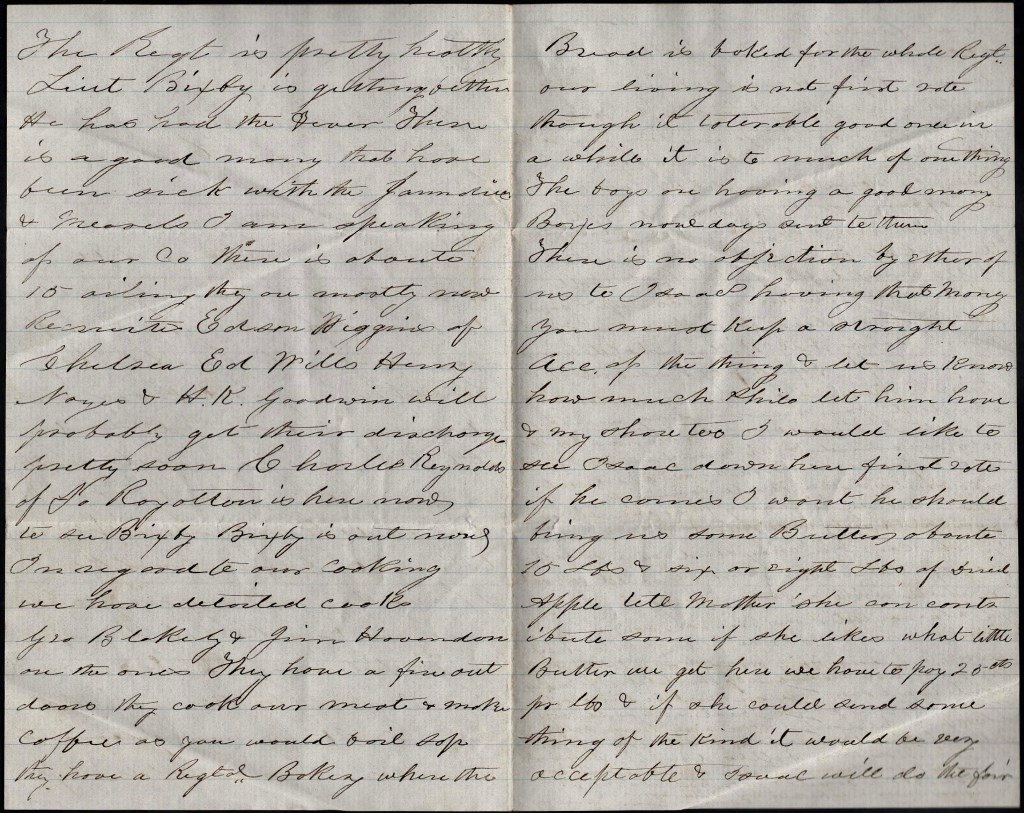 The Regt is pretty healthy
Liut Bixby is getting better
He has had the Fever There
is a good many that have
been sick with the Jaundice
& Measels I am speaking
of our Co there is aboute
15 ailing they are mostly new
Recruits Edson Wiggins of
Chelsea Ed Wills Henry
Noyes & H.K. Goodwin will
probably get their discharge
pretty soon Charles Reynolds
of So Royalton is here now
to see Bixby Bixby is out now
In regard to our cooking
we have detailed cooks
Geo Blakely & Jim Havendon
are the ones They have a fire out
doors they cook our meat & make
coffee as you would boil sap
they have a Regtal Bakery where the
Bread is baked for the whole Regt
our living is not first rate
though it tolerable good once in
a while it is to much of one thing
The boys are having a good many
Boxes now days sent to them
There is no objection by either of
us to Isaac having that Money
you must Keep a straight
acc. of the thing & let us Know
how much Philo let him have
& my share too I would like to
see Isaac down here first rate
if he comes I want he should
bring us some Butter aboute
15 Lbs & six or eight Lbs of Dried
Apple tell Mother she can contr
ibute some if she likes what little
Butter we get here we have to pay 25 cts
pr lb & if she could send some
thing of the Kind it would be very
acceptable & Isaac will do the fair